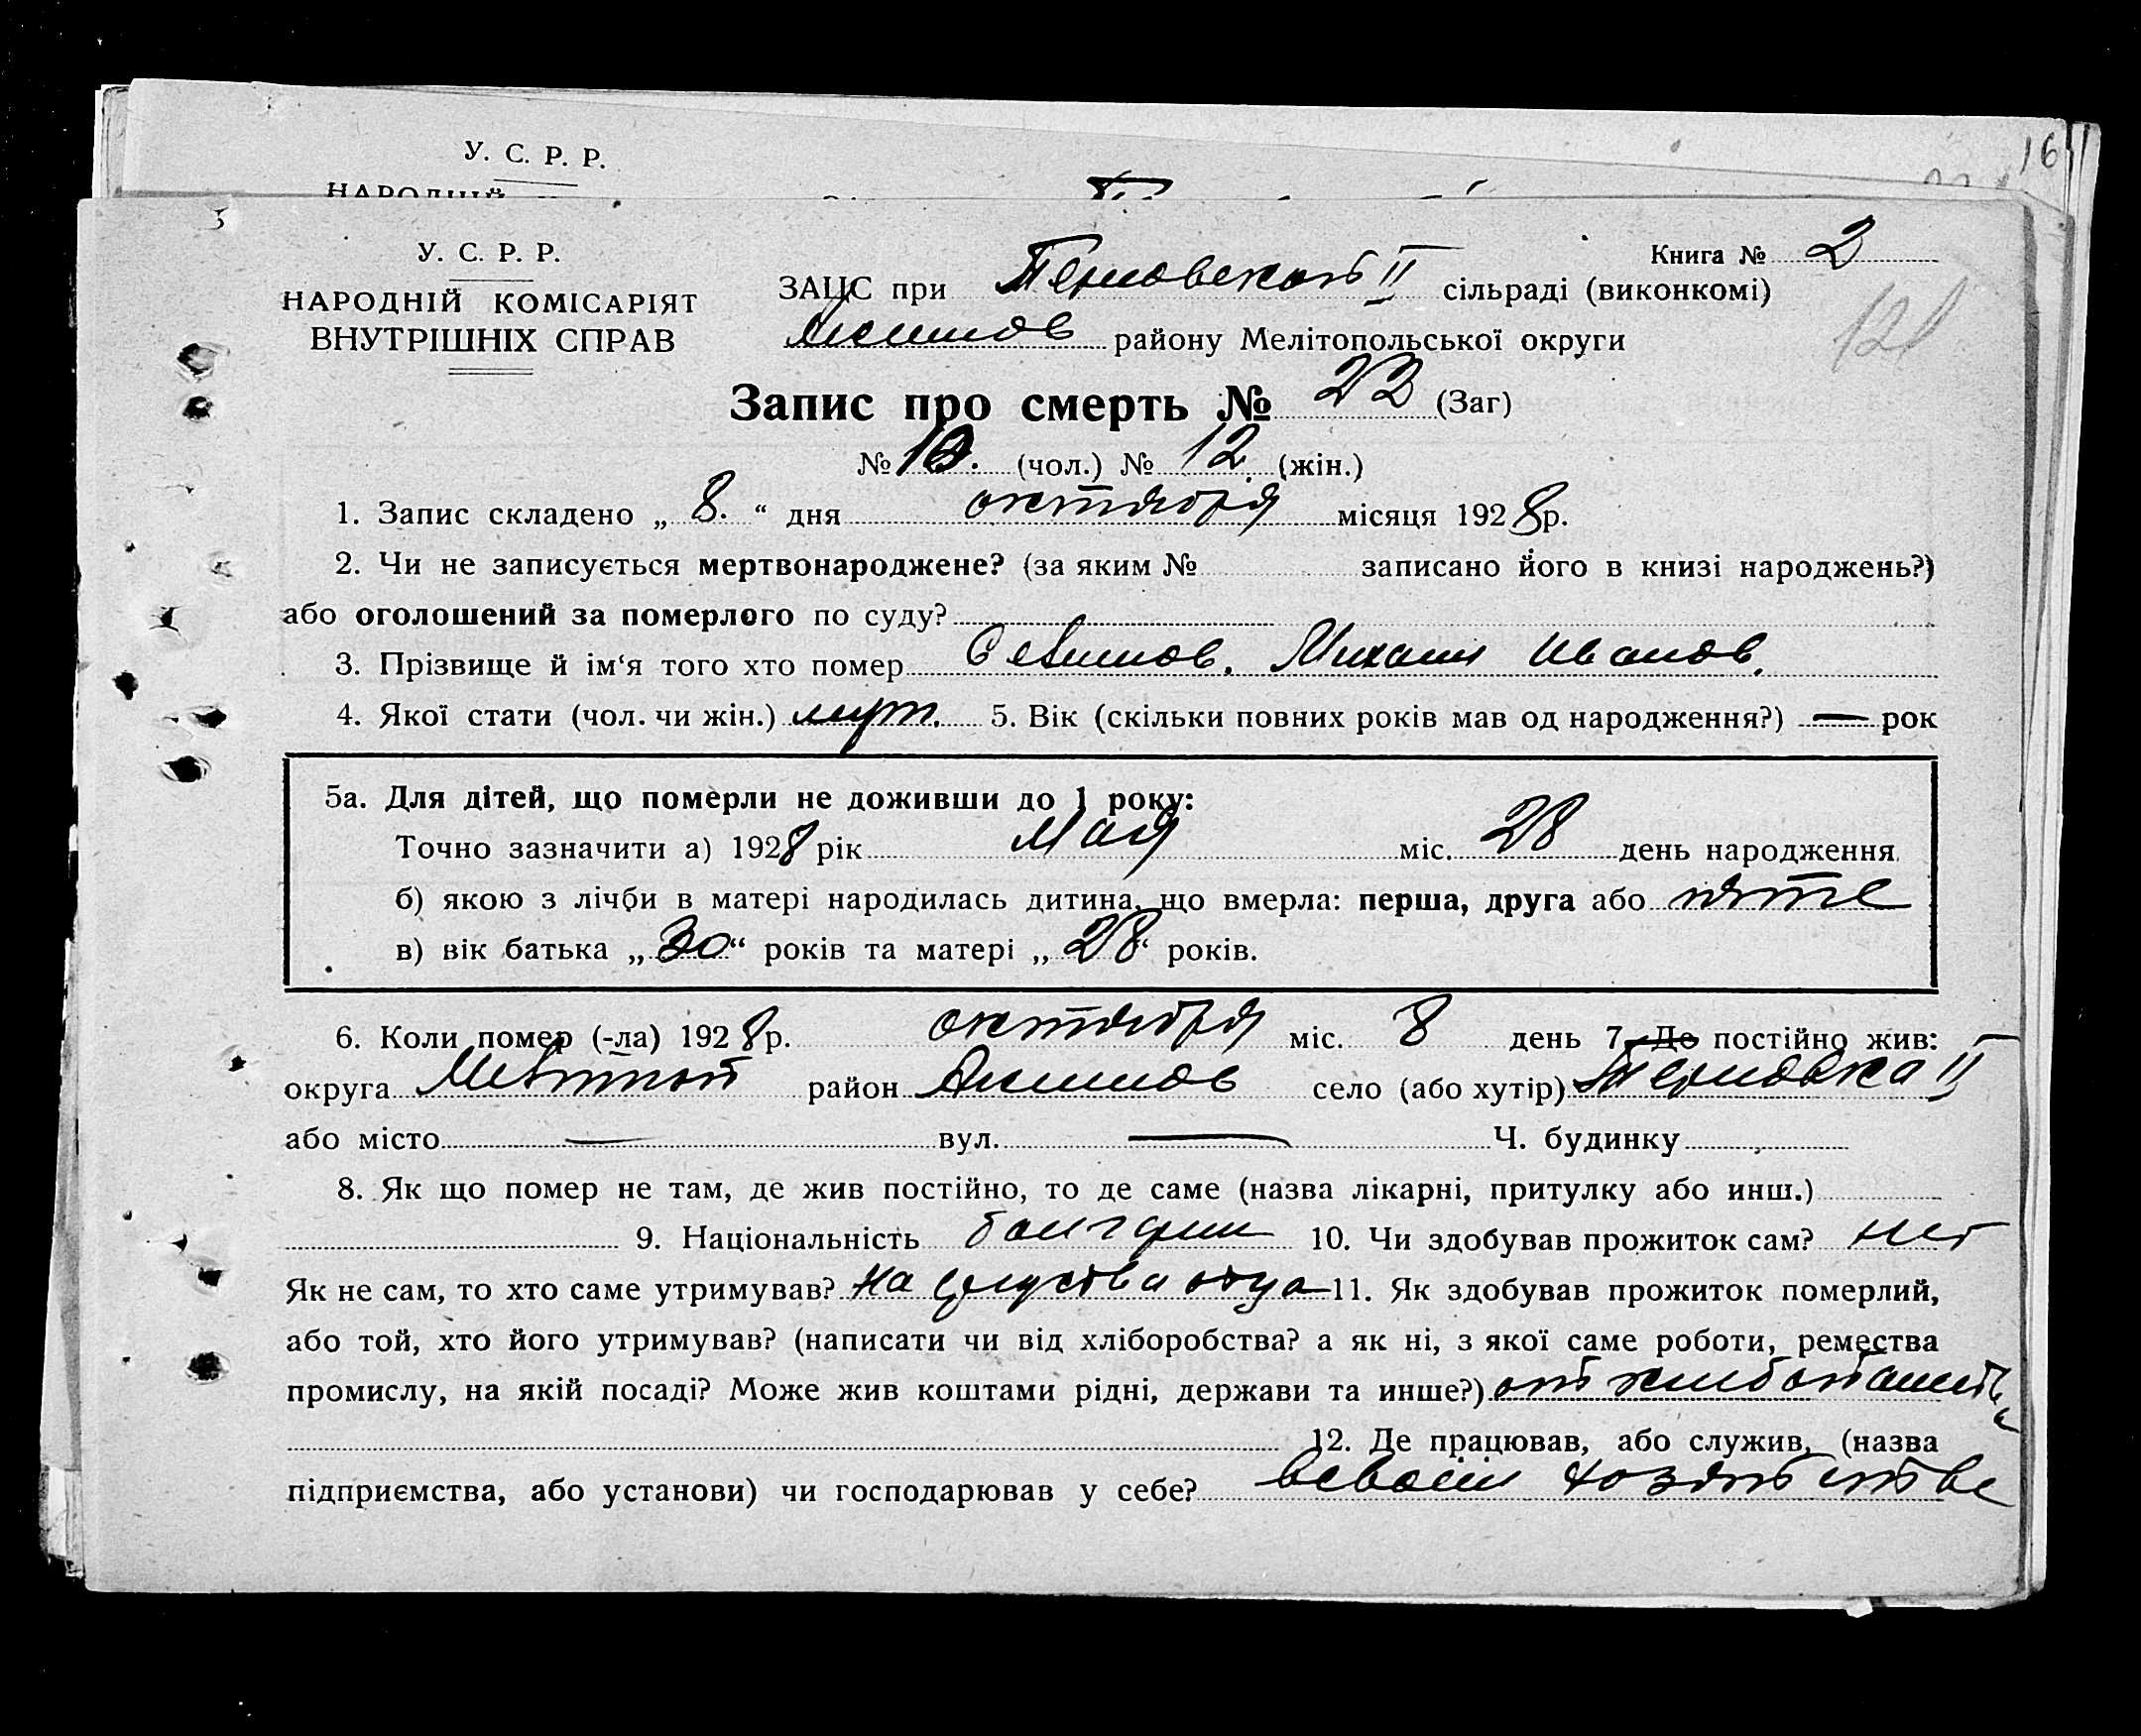 16
У. С. Р. Р.
У. С. Р. Р.
НАРОДНІЙ КОМІСАРІЯТ
ВНУТРІШНІХ СПРАВ
Книга № 2
ЗАЦС при Терновской II сільраді (виконкомі)
Акимов району Мелітопольської округи
121
Запис про смерть № 22 (Заг)
№ 10. (чол.) № 12. (жін.)
1. Запис складено „ 8. “ дня октября місяця 1928р.
2. Чи не записується мертвонароджене? (за яким № записано його в книзі народжень?)
або оголошений за померлого по суду?
3. Прізвище й ім‘я того хто помер Михаил Иванов.
4. Якої стати (чол. чи жін.) 5. Вік (скільки повних років мав од народження?) — рок
5а. Для дітей, що померли не доживши до 1 року:
Точно зазначити а) 1928 рік мая міс. 28 день народження
б) якою з лічби в матері народилась дитина, що вмерла: перша, друга або пяте
в) вік батька „ 30 “ років та матері „ 28 “ років.
6. Коли помер (-ла) 1928р. октября міс. 8 день 7. Де постійно жив:
округа Мелитоп район Акимов село (або хутір) Терновка II
або місто — вул. — Ч. будинку
8. Як що помер не там, де жив постійно, то де саме (назва лікарні, притулку або инш.)
9. Національність болгарин 10. Чи здобував прожиток сам? нет
Як не сам, то хто саме утримував? На средства отца 11. Як здобував прожиток померлий,
або той, хто його утримував? (написати чи від хліборобства? а як ні, з якої саме роботи, ремества
промислу, на якій посаді? Може жив коштами рідні, держави та инше?) от хлебопашества
12. Де працював, або служив, (назва
підприємства, або установи) чи господарював у себе? всвоем хозяйстве